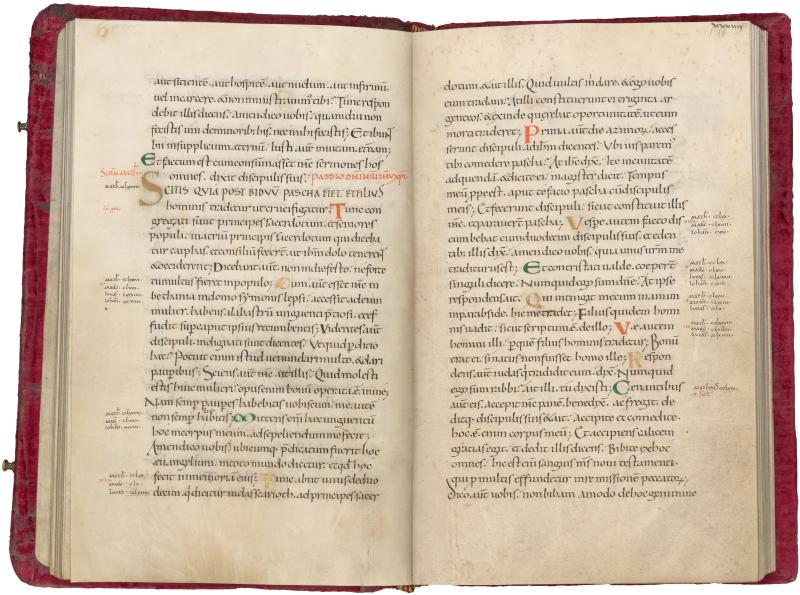 aut sitiente. aut hospite. aut nudum. aut infirmu
vel in carcere. & non ministravim' tibi. Tunc respon
debit illis dicens. amen dico vobis. quamdiu non
fecistis uni de minorib; his. nec mihi fecistis; Et ibun
hi in suppliciu aeternu. Iusti aut in vitam aeterna;
Et factum est cum consummasset ihs sermones hos
omnes. dixit discipulis suis. PASSIO DNI NRI IHU XPI
SCITIS QUIA POST BIDUU PASCHA FIET. ET FILIUS
hominis tradetur ut crucifigatur; Tunc con
gregati sunt principes sacerdotum. et seniores
populi. in atriu principis sacerdotum. qui diceba
tur caiphas. et consiliu fecert. ut ihm dolo tenere
& occiderent; Dicebant aut. non in die festo. ne forte
tumultus fieret in populo; Cum aut esset ihs in
bethania in domo symonis leprosi. accessit ad eum
mulier. habens alabastru unguenti p̄tiosi. et ef
fudit super caput ipsius recumbentis; Videntes aut
discipuli. indignati sunt dicentes. Ut quid p̄ditio
haec? Potuit enim istud venundari multo. & dari
pauperibus; Sciens aut ihs. ait illis. Quid molesti
estis huic mulieri? opus enim bonu operata e in me;
Nam semp pauperes habebitis vobiscum. me aute
non semp habebitis; Mittens enī haec unguentu
hoc in corpus meum. ad sepeliendum me fecit;
Amen dico vobis. ubicumq; p̄dicatum fuerit hoc
evangelium. in toto mundo dicetur. et qd hoc
fecit in memoria eius; Tunc abiit unus de duo
decim. q dicitur iudas scarioth. ad principes sacer
dotum. & ait illis. Quid vultis m dare. & ego vobis
eum tradam. At illi constituerunt ei triginta ar
genteos. & exinde querebat oportunitate. ut eum
mora traderet; Prima aut die azimor. acces
serunt discipuli ad ihm dicentes. Ubi vis parem'
tibi comedere pascha; At ihs dix. Ite in civitate
ad quendā. & dicite ei. magister dicit. Tempus
meu prope est. apud te facio pascha cu discipulis
meis; Et fecerunt discipuli. sicut constituit illis
ihs. et paraverunt pascha; Vespe autem facto dis
cumbebat cum duodecim discipulis suis. et eden
tib; illis. dix. amen dico vobis. quia unus vrm me
traditurus est; Et contristati valde. coepert
singuli dicere. Numquid ego sum dne. At ipse
respondens ait. Qui intingit mecum manum
in parabside. hic me tradet; Filius quidem homi
nis vadit. sicut scriptum e de illo; Vae autem
homini illi. p que filius hominis tradetur; Bonu
erat ei. si natus non fuisset homo ille; Respon
dens aut iudas q tradidit eum. dix. Numquid
ego sum rabbi. ait illi. tu dixisti; Cenantibus
aut eis. accepit ihs pane. benedix. ac fregit. de
ditq; discipulis suis. & ait. accipite et comedite.
hoc e enim corpus meu; Et accipiens calicem
gratias egit. et dedit illis dicens. Bibite ex hoc
omnes. hic est enī sanguis ms novi testamenti.
qui p multis effundetur in remissionē peccator;
Dico aut vobis. non bibam amodo de hoc genimine